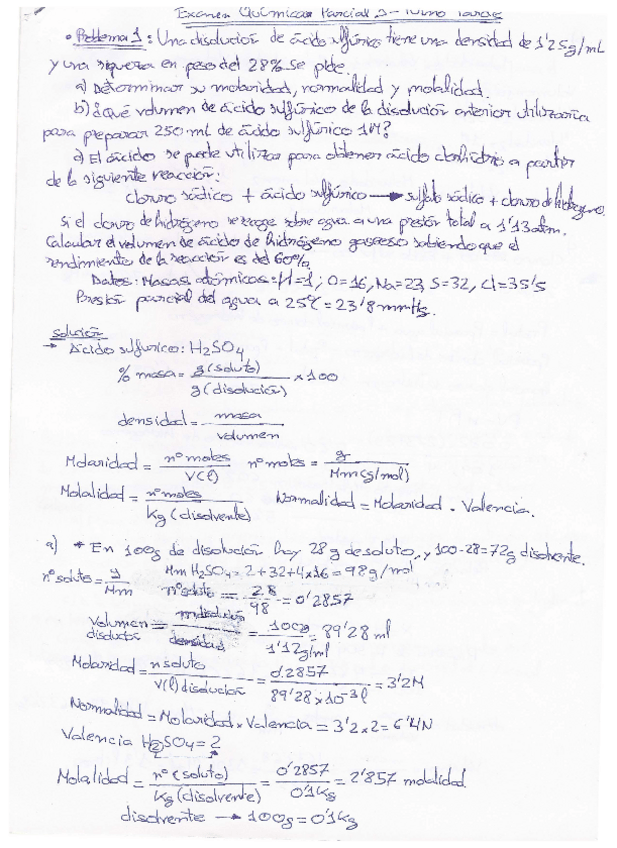 Examen Químicas Parcial 2 - Turno tarde
• Problema 1: Una disolución de ácido sulfúrico tiene una densidad de 1'25g/mL
y una riqueza en peso del 28% se pide.
a) Determinar su molaridad, normalidad y molalidad.
b) ¿Qué volumen de ácido sulfúrico de la disolución anterior utilizaría
para preparar 250 ml de ácido sulfúrico 1M?
c) El ácido se puede utilizar para obtener ácido clorhídrico a partir
de la siguiente reacción:
cloruro sódico + ácido sulfúrico → sulfato sódico + cloruro de hidrógeno.
Si el cloruro de hidrógeno se recoge sobre agua a una presión total a 1'13 atm.
Calcular el volumen de ácido de hidrógeno gaseoso sabiendo que el
rendimiento de la reacción es del 60%.
Datos: Masas atómicas: H=1; O=16, Na=23, S=32, Cl=35'5
Presión parcial del agua a 25ºC = 23'8 mmHg.
solución
→ Ácido sulfúrico: H2SO4
% masa = g(soluto) / g(disolución) x 100
densidad = masa / volumen
Molaridad = nº moles / V(l) nº moles = g / Mm(g/mol)
Molalidad = nº moles / Kg (disolvente) Normalidad = Molaridad . Valencia.
a) * En 100g de disolución hay 28 g de soluto, y 100-28=72g disolvente.
nº soluto = g / Mm Mm H2SO4 = 2+32+4x16 = 98g/mol nº soluto = 28 / 98 = 0'2857
Volumen disolución = m disolución / densidad = 100g / 1'12g/ml = 89'28 ml
Molaridad = n soluto / V(l) disolución = 0'2857 / 89'28 x 10-3 l = 3'2M
Normalidad = Molaridad x Valencia = 3'2 x 2 = 6'4N
Valencia H2SO4 = 2
Molalidad = nº (soluto) / Kg (disolvente) = 0'2857 / 0'1Kg = 2'857 molalidad.
disolvente → 100g = 0'1Kg